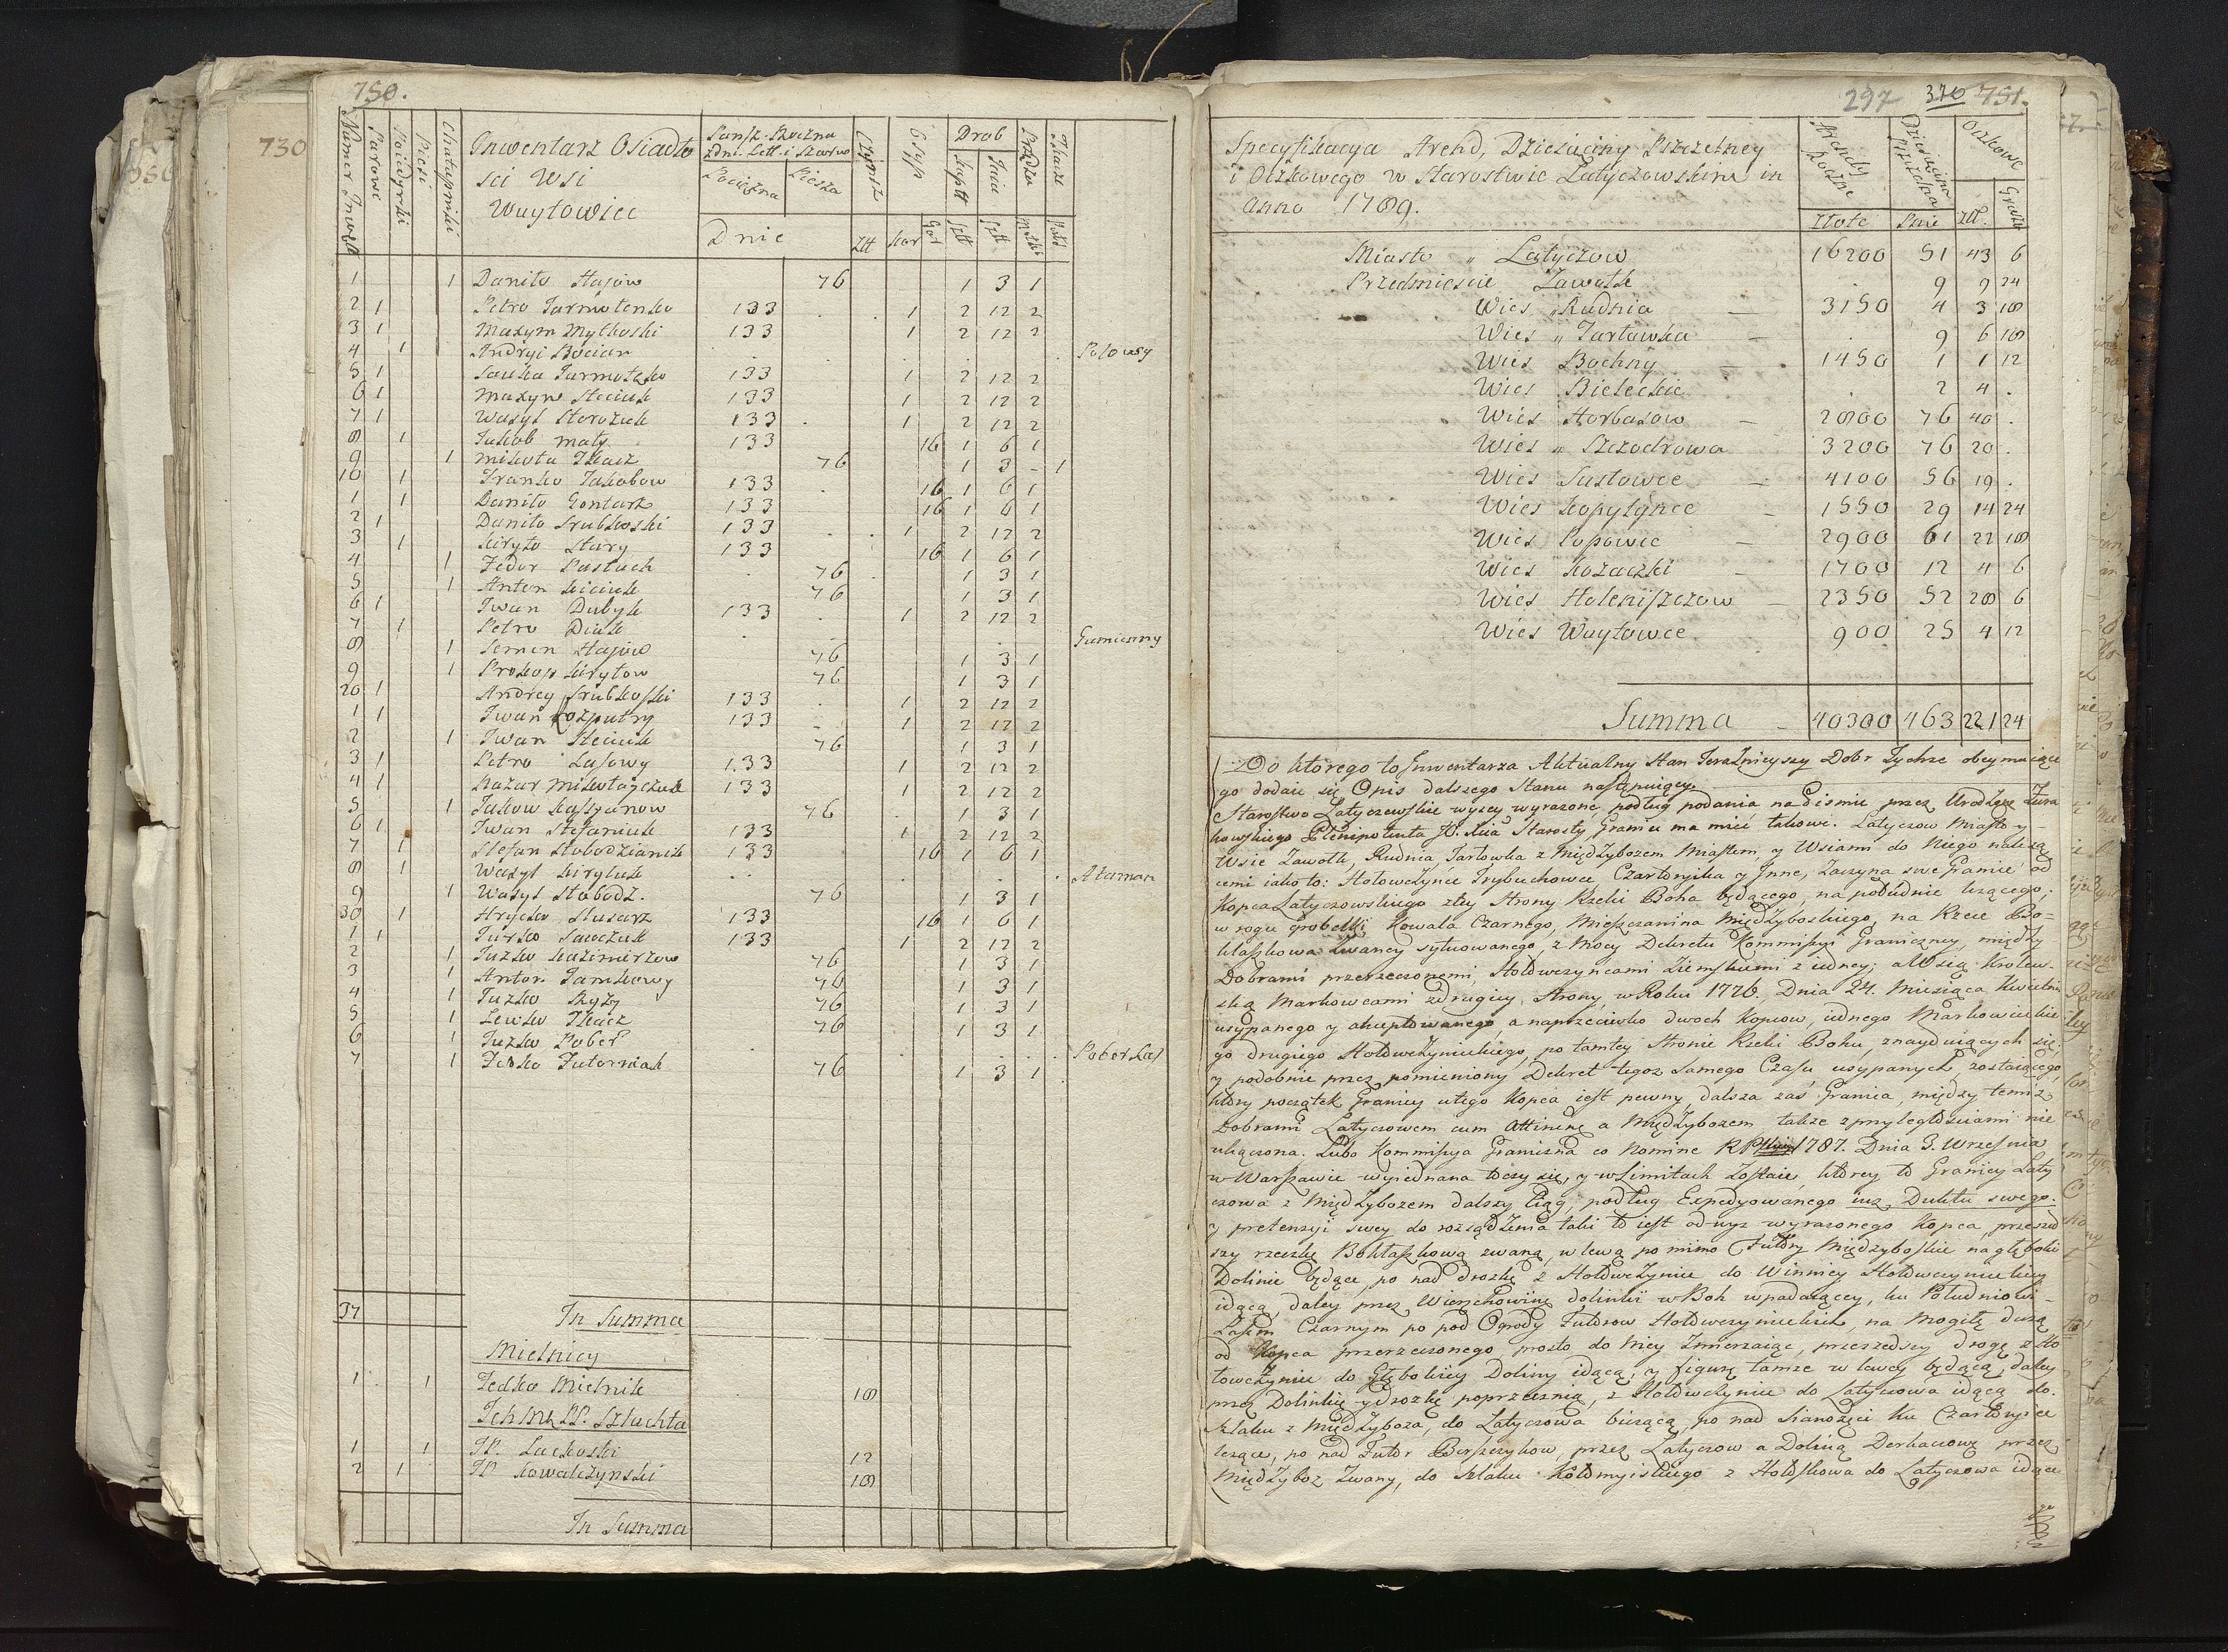 730
750.
Numer Inwen
Parowe
Poiedynki
Piesi
Chałupniki
Inwentarz Osiadło
sci Wsi
Wuytowiec
Pansz. Roczna
zdni. Lett. i Szarw
Pociężna
Piesza
Dnie
Czynsz
Złł
Osyp
Kor
Gar
Drob
Kapł
Jaia
Szt
Szt
Przędza
Tkanie
1 1 Daniło Hajow 76 1 3 1
2 1 Petro Jarmolenko 133 1 2 12 2
3 1 Maxym Mytkoski 133 1 2 12 2
4 1 Andryi Bocian Polowy
5 1 Sawka Jarmolenko 133 1 2 12 2
6 1 Maxym Steciuk 133 1 2 12 2
7 1 Wasyl Storozuk 133 1 2 12 2
8 1 Jakob Mały 133 16 1 6 1
9 1 Mikoła Tkacz 76 1 3 - 1
10 1 Iranko Jakobow 133 16 1 6 1
1 1 Daniło Gontarz 133 16 1 6 1
2 1 Daniło Srubkoski 133 1 2 12 2
3 1 Kiryło Stary 133 16 1 6 1
4 1 Fedor Pastuch 76 1 3 1
5 1 Anton Kiciuk 76 1 3 1
6 1 Iwan Dubyk 133 1 2 12 2
7 1 Petro Diak Gumienny
8 1 Semen Hajow 76 1 3 1
9 1 Prokop Kiryłow 76 1 3 1
20 1 Andrey Srubkoski 133 1 2 12 2
1 1 Iwan Rozputny 133 1 2 12 2
2 1 Iwan Steciuk 76 1 3 1
3 1 Petro Lasowy 133 1 2 12 2
4 1 Nazar Mikołajczuk 133 1 2 12 2
5 1 Jakow Kasyanow 76 1 3 1
6 1 Iwan Stefaniuk 133 1 2 12 2
7 1 Stefan Słobodzianik 133 16 1 6 1
8 1 Wasyl Kiryluk Ataman
9 1 Wasyl Słobodz. 76 1 3 1
30 1 Hryćko Slusarz 133 16 1 6 1
1 1 Jurko Sawczuk 133 1 2 12 2
2 1 Juzko Kazimierzow 76 1 3 1
3 1 Anton Jamkowy 76 1 3 1
4 1 Juzko Ryży 76 1 3 1
5 1 Lewko Tkacz 76 1 3 1
6 1 Juzko Pober Pober Las
7 1 Fedko Futorniak 76 1 3 1
37 In Summa
Mielnicy
1 1 Fedko Mielnik 18
Ichmć PP. Szlachta
1 1 JP. Luckoski 12
2 1 JP. Kowalczynski 18
In Summa
297 370 751.
Specyfikacya Arend, Dziesięciny Pszczelney
i Oczkowego w Starostwie Latyczowskim in
Anno 1789.
Arendy Roczne
Złote
Dziesięcina Pszczelna
Pnie
Oczkowe
Złł.
Grosze
Miasto „ Latyczow 16200 51 43 6
Przedmiescie Zawołk . 9 9 24
Wies „ Rudnia 3150 4 3 18
Wies „ Tarłowka . 9 6 18
Wies Bochny 1450 1 1 12
Wies Bieleckie . 2 4 .
Wies Horbasow 2800 76 40 .
Wies „ Szczodrowa 3200 76 20 .
Wies Susłowce 4100 56 19 .
Wies Kopytynce 1550 29 14 24
Wies Popowce 2900 61 22 18
Wies Kozaczki 1700 12 4 6
Wies Holeniszczow 2350 52 28 6
Wies Wuytowce 900 25 4 12
Summa 40300 463 221 24
Do ktorego to Inwentarza Aktualny Stan Teraznieyszy Dobr Tychze obeymuiące
go dodaie się Opis dalszego Stanu następuiący
Starostwo Latyczewskie wyzey wyrazone, podług podania na Pismie przez Urodzge Żura
kowskiego Plenipotenta JO. Xcia Starosty Granice ma mieć takowe. Latyczow Miasto y
Wsie Zawołk, Rudnia, Tarłowka z Międzybozem Miastem, y Wsiami do Niego należą
cemi iako to: Hołowczyńce Trybuchowce Czartoryika y Inne, Zaczyna swe Granice od
Kopca Latyczowskiego z tey Strony Rzeki Boha będącego, na południe lezącego,
w rogu grobelki Kowala Czarnego, Mieszczanina Międzyboskiego, na Rzece Bo=
kłaszkowa zwaney sytuowanego, z Mocy Dekretu Kommissyi Graniczney, między
Dobrami przerzeczonemi, Hołowczyncami Ziemskiemi z iedney; a Wsią Krolew-
ską Markowcami z drugiey Strony, w Roku 1776. Dnia 24. Miesiąca Kwietnia
usypanego y akceptowanego, a naprzeciwko dwoch Kopcow, iednego Markowieckie
go drugiego Hołowczynieckiego, po tamtey Stronie Rzeki Bohu, znayduiących się,
y podobnie przez pomieniony Dekret tegoz Samego Czasu usypanych, zostaiącego,
ktory początek Granicy u tego Kopca iest pewny, dalsza zaś Granica, między temiz
Dobrami Latyczowem cum Attinen: a Międzybozem, takze z przyległościami nie
ukączona. Lubo Kommissya Graniczna co Nomine RP 1787. Dnia 3. Wrzesnia
w Warszawie wyiednana toczy się, y w Limitach Zostaie, ktorey to Granicy Laty
czowa z Międzybozem dalszy Ciąg, podług Expedyowanego iuz Duktu swego.
y pretensyi swey do rozsądzenia taki to iest od wyz wyrazonego Kopca, przeszed
szy rzeczkę Bokłaszkową zwaną, w lewą po mimo Futory Międzyboskie na głębokiey
Dolinie będące, po nad drozkę z Hołowczyniec do Winnicy Hołowczynieckiey
idącą, daley przez Wierzchowinę dolinki w Boh wpadaiącey, ku Południowi-
Lasem Czarnym po pod Ogrody Futorow Hołowczynieckich, na Mogiłę duzą
od Kopca przerzeczonego prosto do Niey Zmierzaiąc, przeszedszy drogę z Ho
łowczyniec do Głębokiey Doliny idącą, y figurę tamze w lewey będącą, daley
przez Dolinkę y drozkę poprzeczną, z Hołowczyniec do Latyczowa idącą do.
Szlaku z Międzyboza, do Latyczowa biezącą, po nad Sianozęci ku Czartoryice
lezące, po nad Futor Berszczykow, przez Latyczow a Doliną Derkaczową przez
Międzyboz Zwany, do Szlaku Kołomyiskiego z Hołoskowa do Latyczowa idące